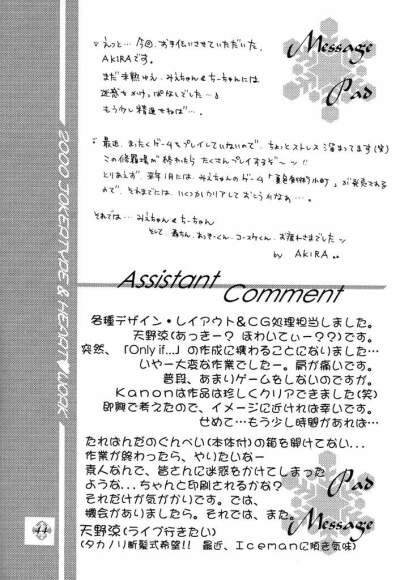 Message
Pad
。えっと…今回、お手伝いさせていただいた、
AKIRAです。
まだ未熟ゆえ、みえちゃん&ちーちゃんには
迷惑をかけっぱなしでした…
もう少し精進せねば…。
。最近、まったくゲームをプレイしていないので、ちょっとストレス溜まってます(笑)
この修羅場が終わったらたくさんプレイするぞ〜ッ!!
とりあえず、来年1月には、みえちゃんのゲーム「
」が発売される
ので、それまでには、いくつかクリアしておこうかなぁ…。
それでは…みえちゃん&ちーちゃん
そして、
お疲れさまでしたッ
by AKIRA
Assistant
Comment
各種デザイン・レイアウト&CG処理担当しました。
天野涼(あっきー? ほわいてぃー??)です。
突然、「Only if...」の作成に携わることになりました…
いやー大変な作業でしたー。肩が痛いです。
普段、あまりゲームをしないのですが。
Kanonは作品は珍しくクリアできました(笑)
即興で考えたので、イメージに近ければ幸いです。
せめて…もう少し時間があれば…
たれぱんだのぐんぺい(本体付)の箱を開けてない...
作業が終わったら、やりたいなー
素人なんで、皆さんに迷惑をかけてしまった
ような...ちゃんと印刷されるかな?
それだけが気がかりです。では、
機会がありましたら。それでは、また。
天野涼(ライブ行きたい)
(タカノリ断髪式希望!! 最近、Icemanに傾き気味)
Pad
Message
2000 JOKERTYPE & HEART♥WORK
44